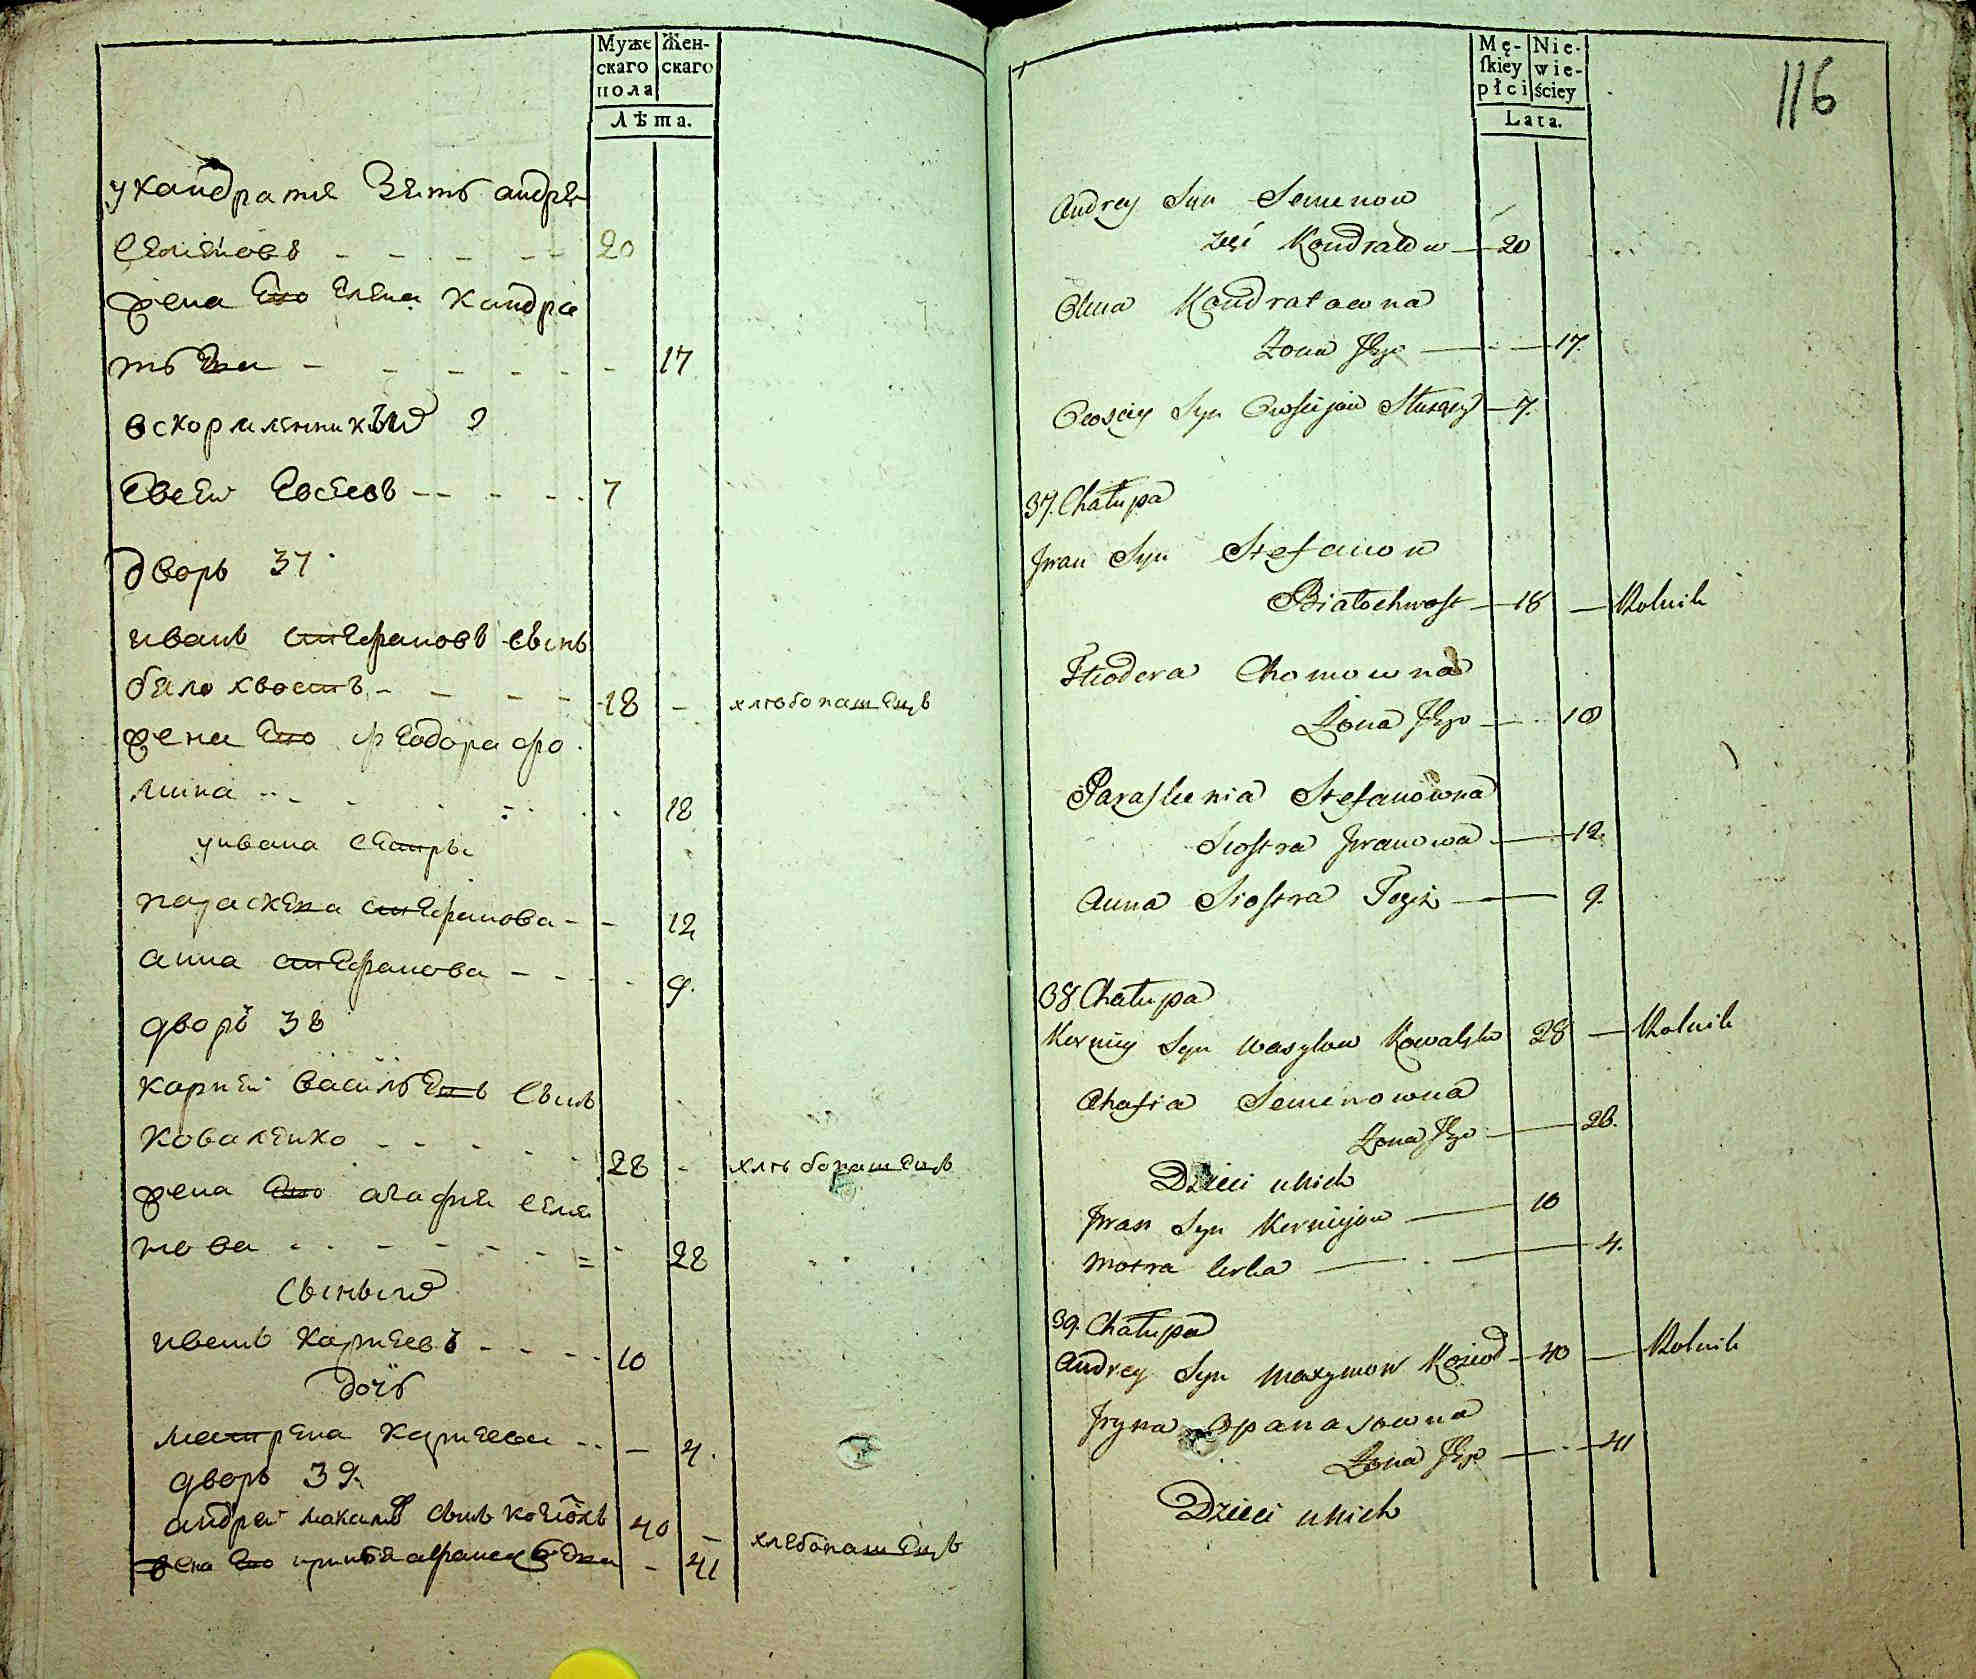 Муже
скаго
пола
Жен-
скаго
Лѣта.
укандратя Зять андрей
Семеновъ - - - - - 20
жена Его Елена кандра
тьева - - - - - - 17
вскормленникъ
Евсей Евсеевъ - - - - 7
дворъ 37.
иванъ стефановъ сынъ
било хвостъ - - - - 18 - хлѣбопашецъ
жена Его феодора фо
мина - - - - - 18
уивана сестры
параскева стефанова - - 12
анна стефанова - - - 9.
дворъ 38
карней васильевъ сынъ
коваленко - - - - - 28 - хлѣбопашецъ
жена Его агафия семе
нова - - - - - - - 28
сынъ
иванъ карнеевъ - - - - 10
дочь
матрена карнеева - - - 4.
дворъ 39.
андрей макимовъ сынъ 40 - хлебопашецъ
жена Его - 41
Mę-
ſkiey
płci
Nie-
wie-
ściey
Lata.
116
Andrey Syn Semenow
zęć Kondratow - 20
Olena Kondratowna
Żona Jego - 17.
Owsiey Syn - 7.
37. Chałupa
Jwan Syn Stefanow
Białochwost - 18 - Rolnik
Fteodora Chomowna
Żona Jego - 18
Paraskewia Stefanowna
Siostra Jwanowa - 12.
Anna Siostra Tegoż - 9.
38 Chałupa
Kerniey Syn Wasylow Kowalenko 28 - Rolnik
Ahafia Semenowna
Żona Jego - 28.
Dzieci uNich
Jwan Syn Kernieyow - 10
Motra Curka - 4.
39. Chałupa
Andrey Syn Maxymow Kozioł - 40 - Rolnik
Jryna Opanasowna
Żona Jego - 41
Dzieci uNich